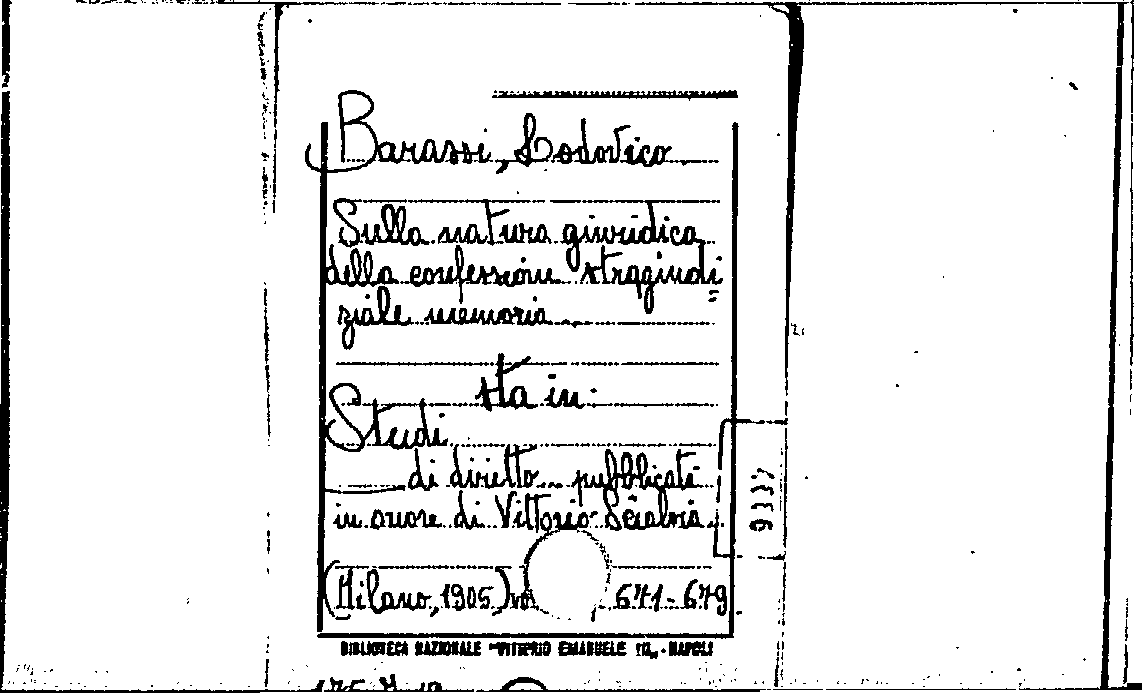 Barassi, Lodovico
Sulla natura giuridica
della confessione stragiudi=
ziale memoria...
sta in:
Studi
____ di diritto... pubblicati
in onore di Vittorio Scialoia...
(Milano, 1905) vo 671-679.
BIBLIOTECA NAZIONALE "VITTORIO EMANUELE III" - NAPOLI
9337